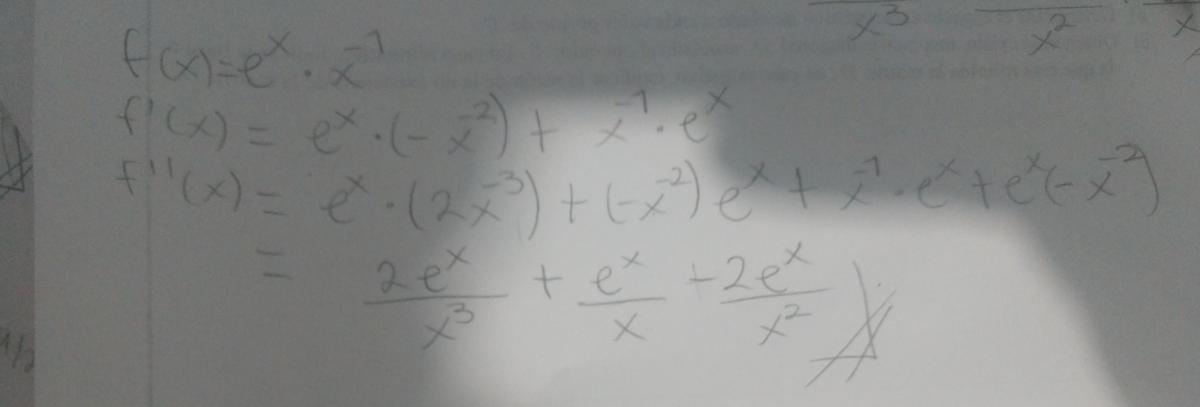 x³ x² x
f(x)=eˣ·x⁻¹
f'(x) = eˣ·(-x⁻²) + x⁻¹·eˣ
f''(x) = eˣ·(2x⁻³) + (-x⁻²)eˣ + x⁻¹·eˣ + eˣ(-x⁻²)
= 2eˣ/x³ + eˣ/x - 2eˣ/x²
1/2